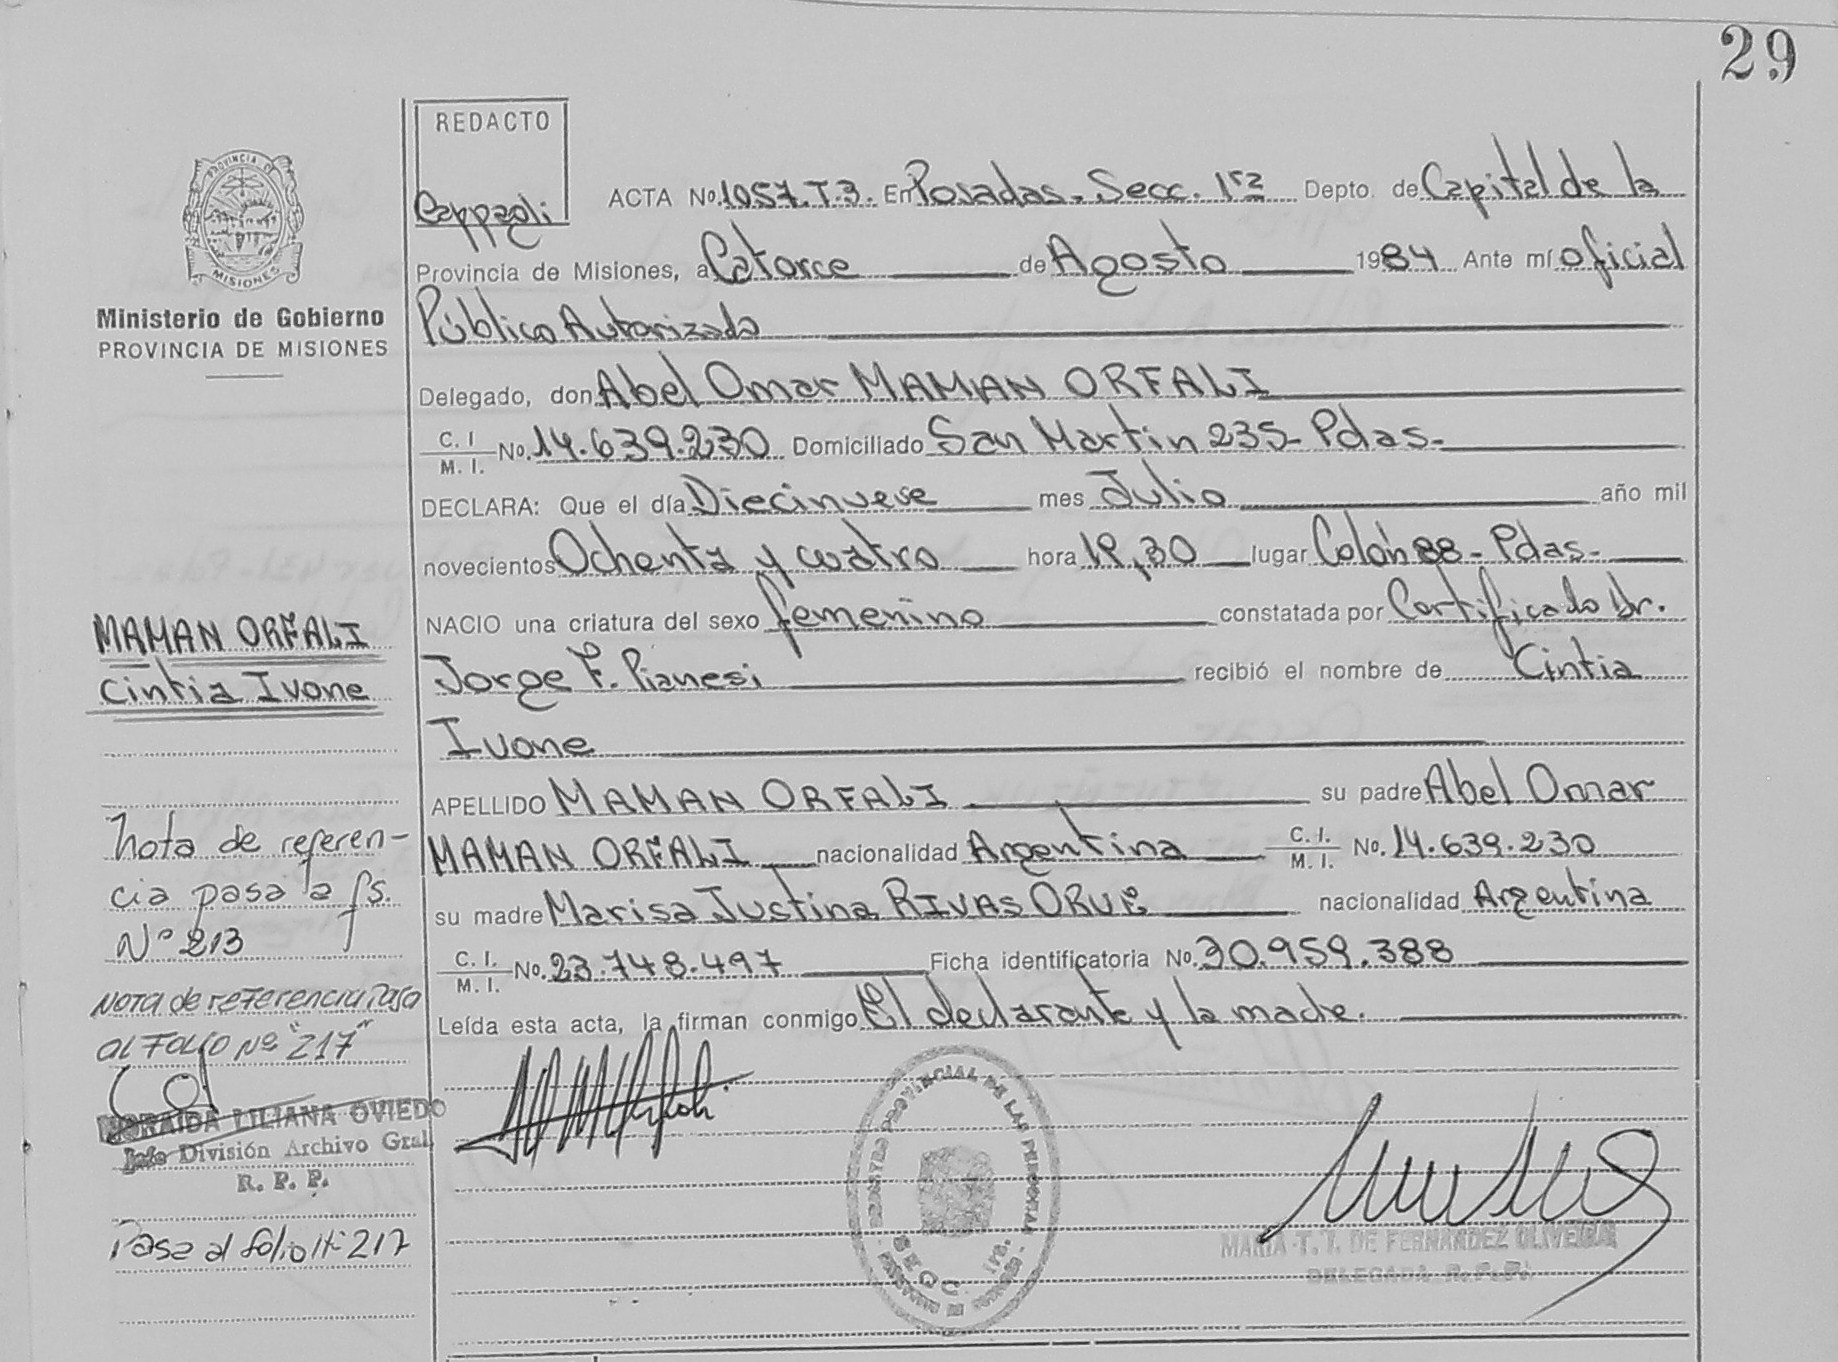 29
REDACTO
Cappagli
PROVINCIA DE
MISIONES
Ministerio de Gobierno
PROVINCIA DE MISIONES
ACTA No. 1057.T.3. En Posadas, Secc. 1ra Depto. de Capital de la
Provincia de Misiones, a Catorce de Agosto 1984 Ante mí oficial
Público Autorizado
Delegado, don Abel Omar MAMAN ORFALI
C. I. / M. I. No. 14.639.230 Domiciliado San Martin 235- Pdas-
DECLARA: Que el día Diecinueve mes Julio año mil
novecientos Ochenta y cuatro hora 19,30 lugar Colón 88- Pdas-
NACIO una criatura del sexo femenino constatada por Certificado Dr.
Jorge F. Pianesi recibió el nombre de Cintia
Ivone
APELLIDO MAMAN ORFALI su padre Abel Omar
MAMAN ORFALI nacionalidad Argentina C. I. / M. I. No. 14.639.230
su madre Marisa Justina RIVAS ORUE nacionalidad Argentina
C. I. / M. I. No. 23.748.497 Ficha identificatoria No. 30.959.388
Leída esta acta, la firman conmigo El declarante y la madre.
MAMAN ORFALI
Cintia Ivone
Nota de referen-
cia pasa a fs.
Nº 213
NOTA de REFERENCIA Pasa
al FOLIO Nº "217"
ZORAIDA LILIANA OVIEDO
Jefe División Archivo Gral
R. P. P.
Pase al folio Nº 217
REGISTRO PROVINCIAL DE LAS PERSONAS
SECC. 1ra.
MARIA T. T. DE FERNANDEZ OLIVEIRA
DELEGADA R.P.P.